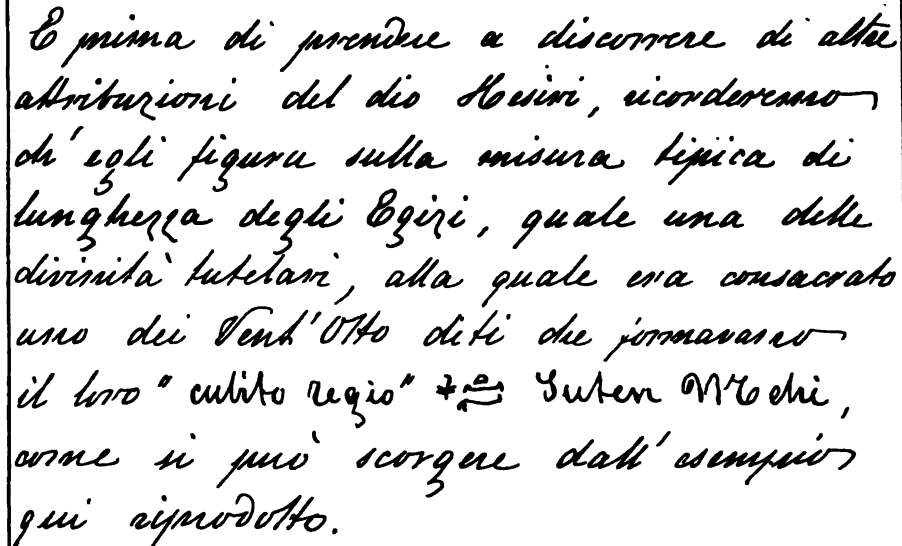 E prima di prendere a discorrere di altre
attribuzioni del dio Hesiri, ricorderemo
ch' egli figura sulla misura tipica di
lunghezza degli Egizi, quale una delle
divinità tutelari, alla quale era consacrato
uno dei Vent' Otto diti che formavano
il loro "cubito regio" Suten Mehi,
come si può scorgere dall' esempio
qui riprodotto.